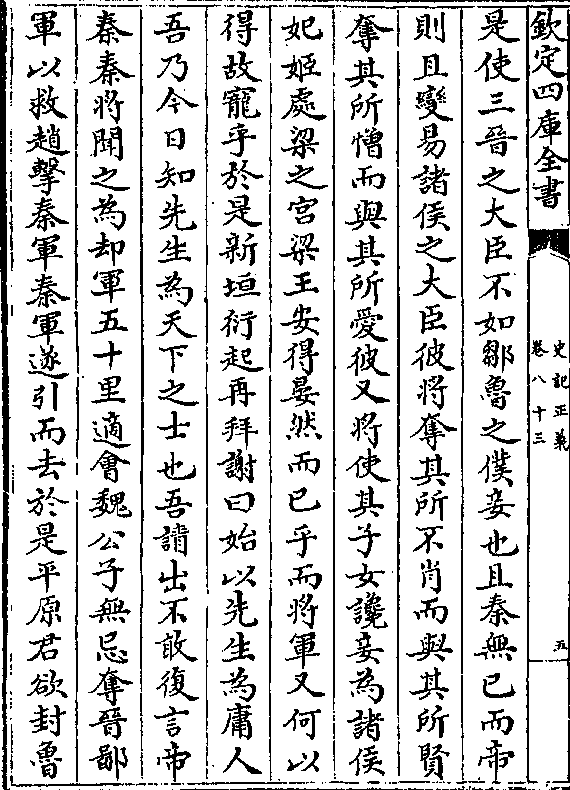 欽定四庫全書
史記正義
卷八十三
五
是使三晉之大臣不如鄒魯之僕妾也且秦無已而帝
則且變易諸侯之大臣彼將奪其所不肖而與其所賢
奪其所憎而與其所愛彼又將使其子女讒妾為諸侯
妃姬處梁之宮梁王安得晏然而已乎而將軍又何以
得故寵乎於是新垣衍起再拜謝曰始以先生為庸人
吾乃今日知先生為天下之士也吾請出不敢復言帝
秦秦將聞之為却軍五十里適會魏公子無忌奪晉鄙
軍以救趙擊秦軍秦軍遂引而去於是平原君欲封魯